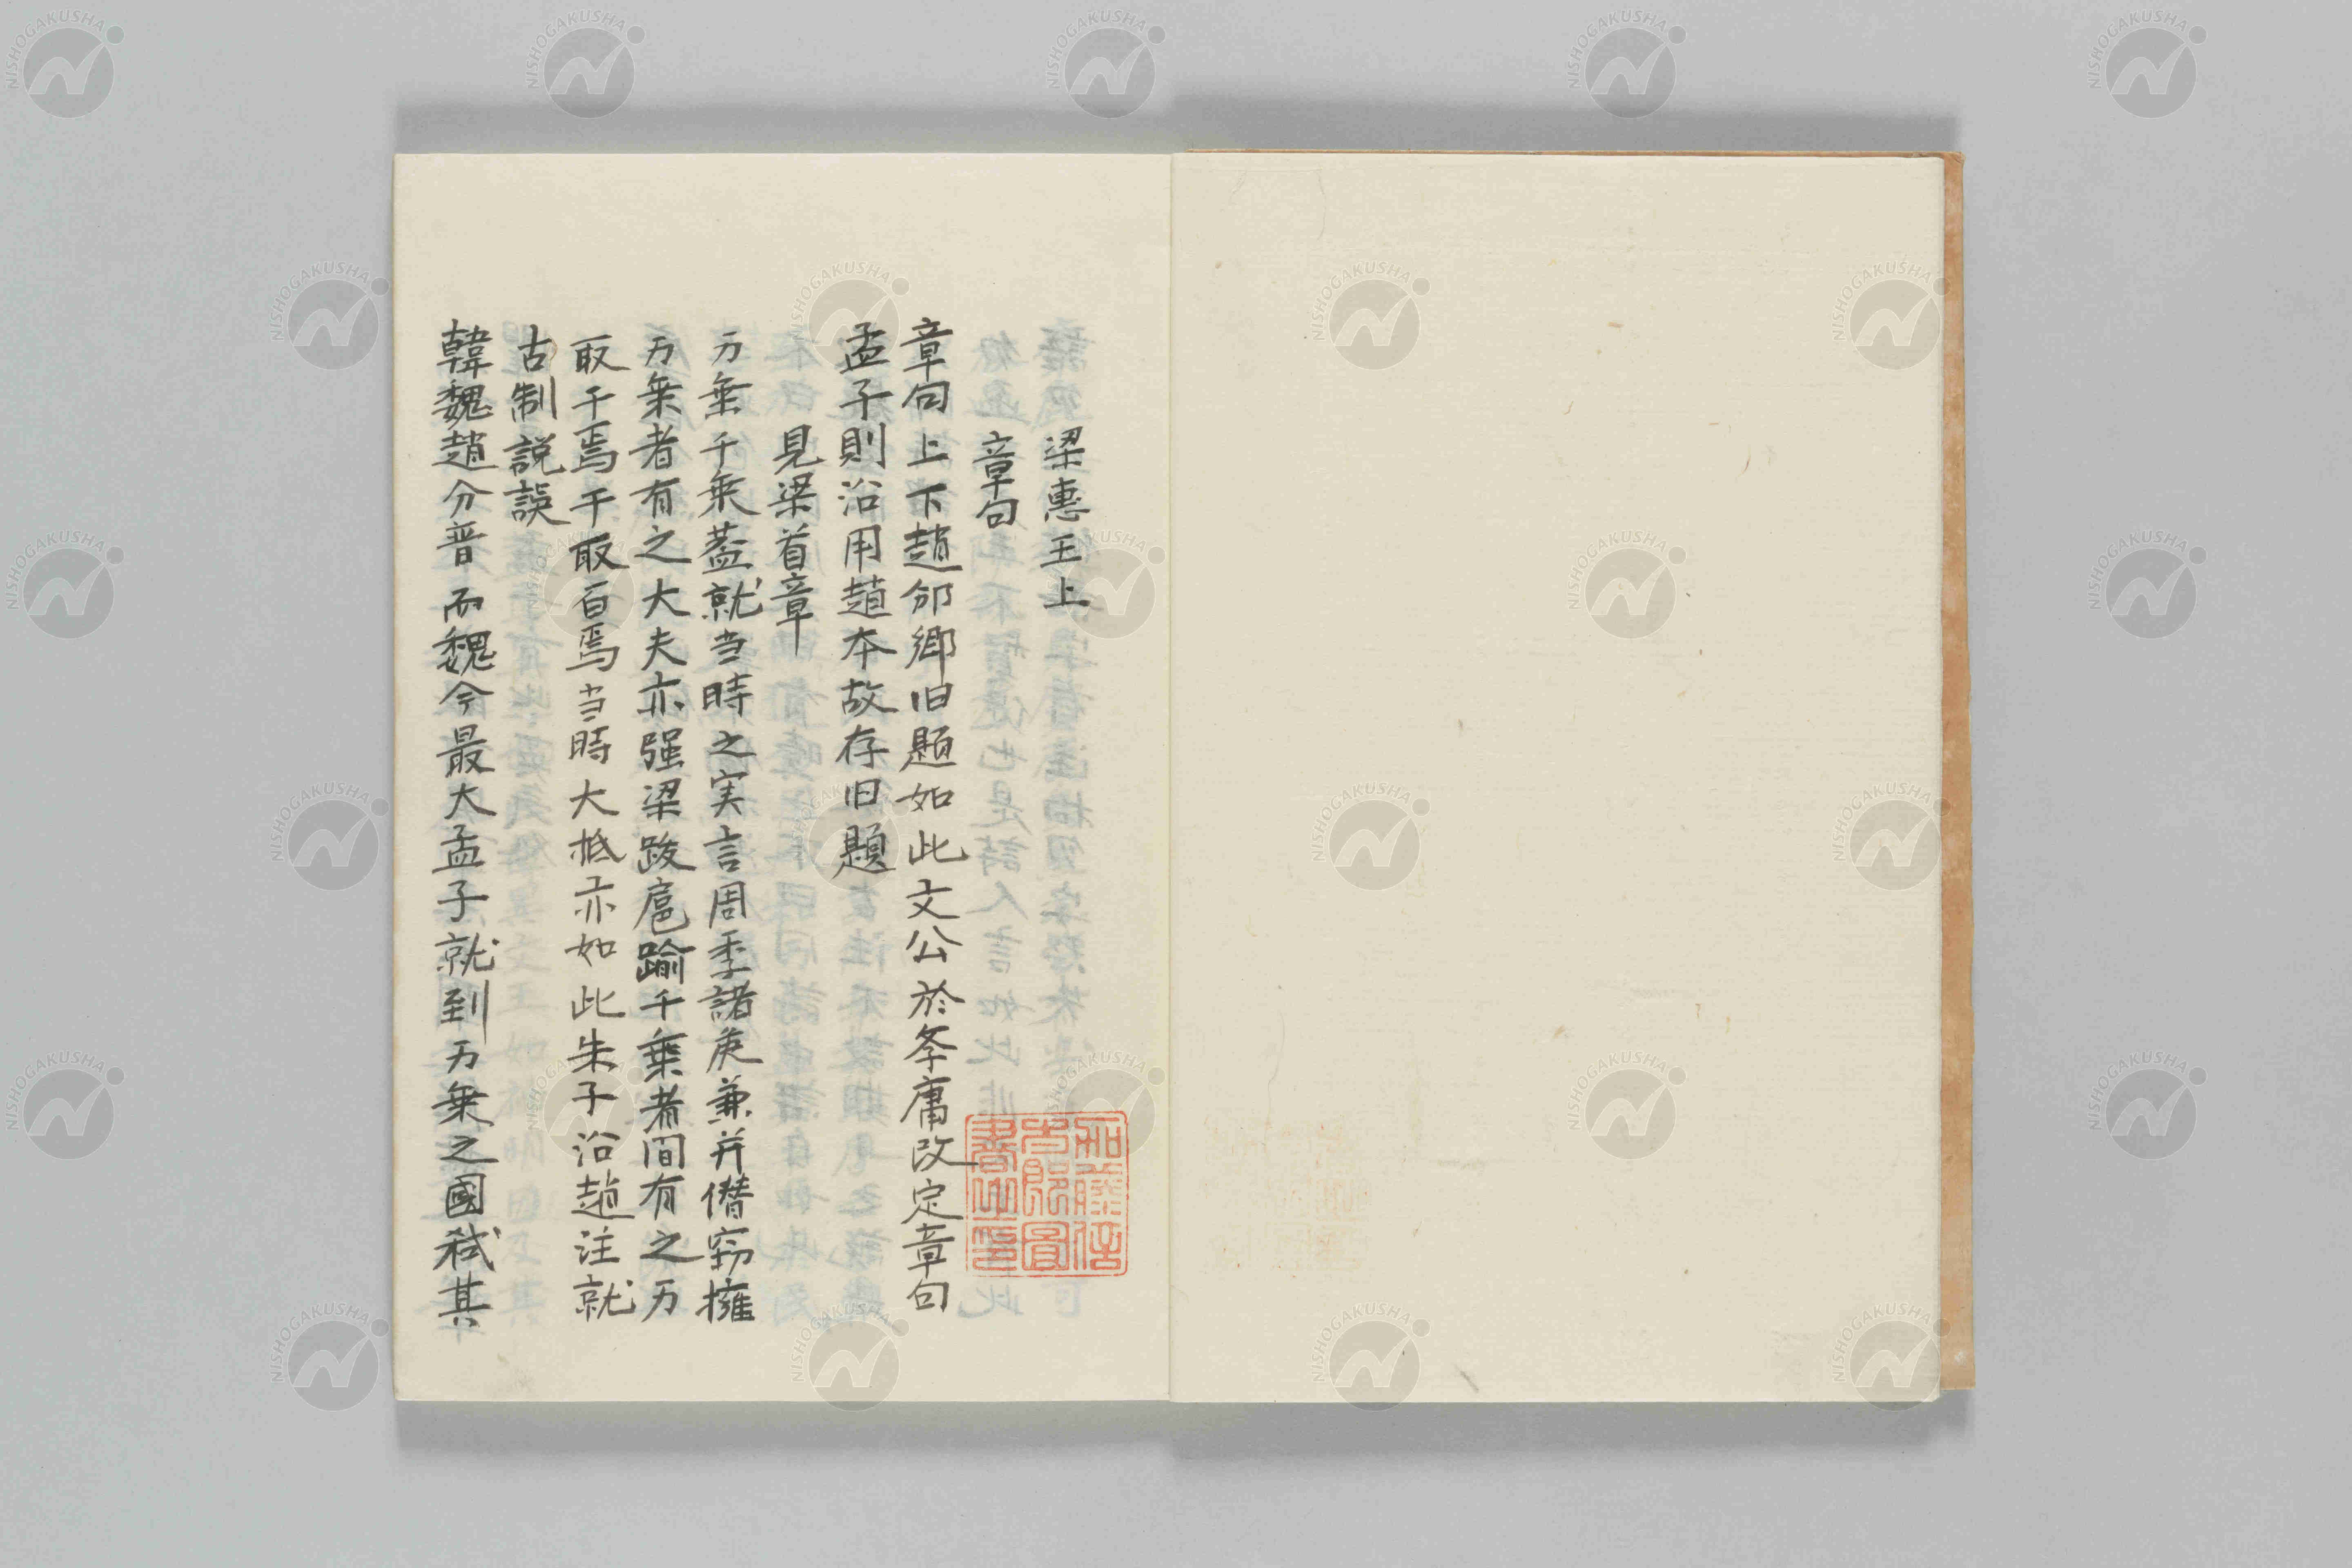 梁惠王上
章句
章句上下趙邠郷旧題如此文公於李庸改定章句
孟子則沿用趙本故存旧題
見梁首章
万乗千乗蓋就当時之実言周季諸矦兼并僣窃擁
万乗者有之大夫亦强梁跋扈踰千乗者間有之万
取千焉千取百焉当時大抵亦如此朱子沿趙注就
古制説誤
韓魏趙分晋而魏今最大孟子就到万乗之國弑其
加藤
書印
NISHOGAKUSHA